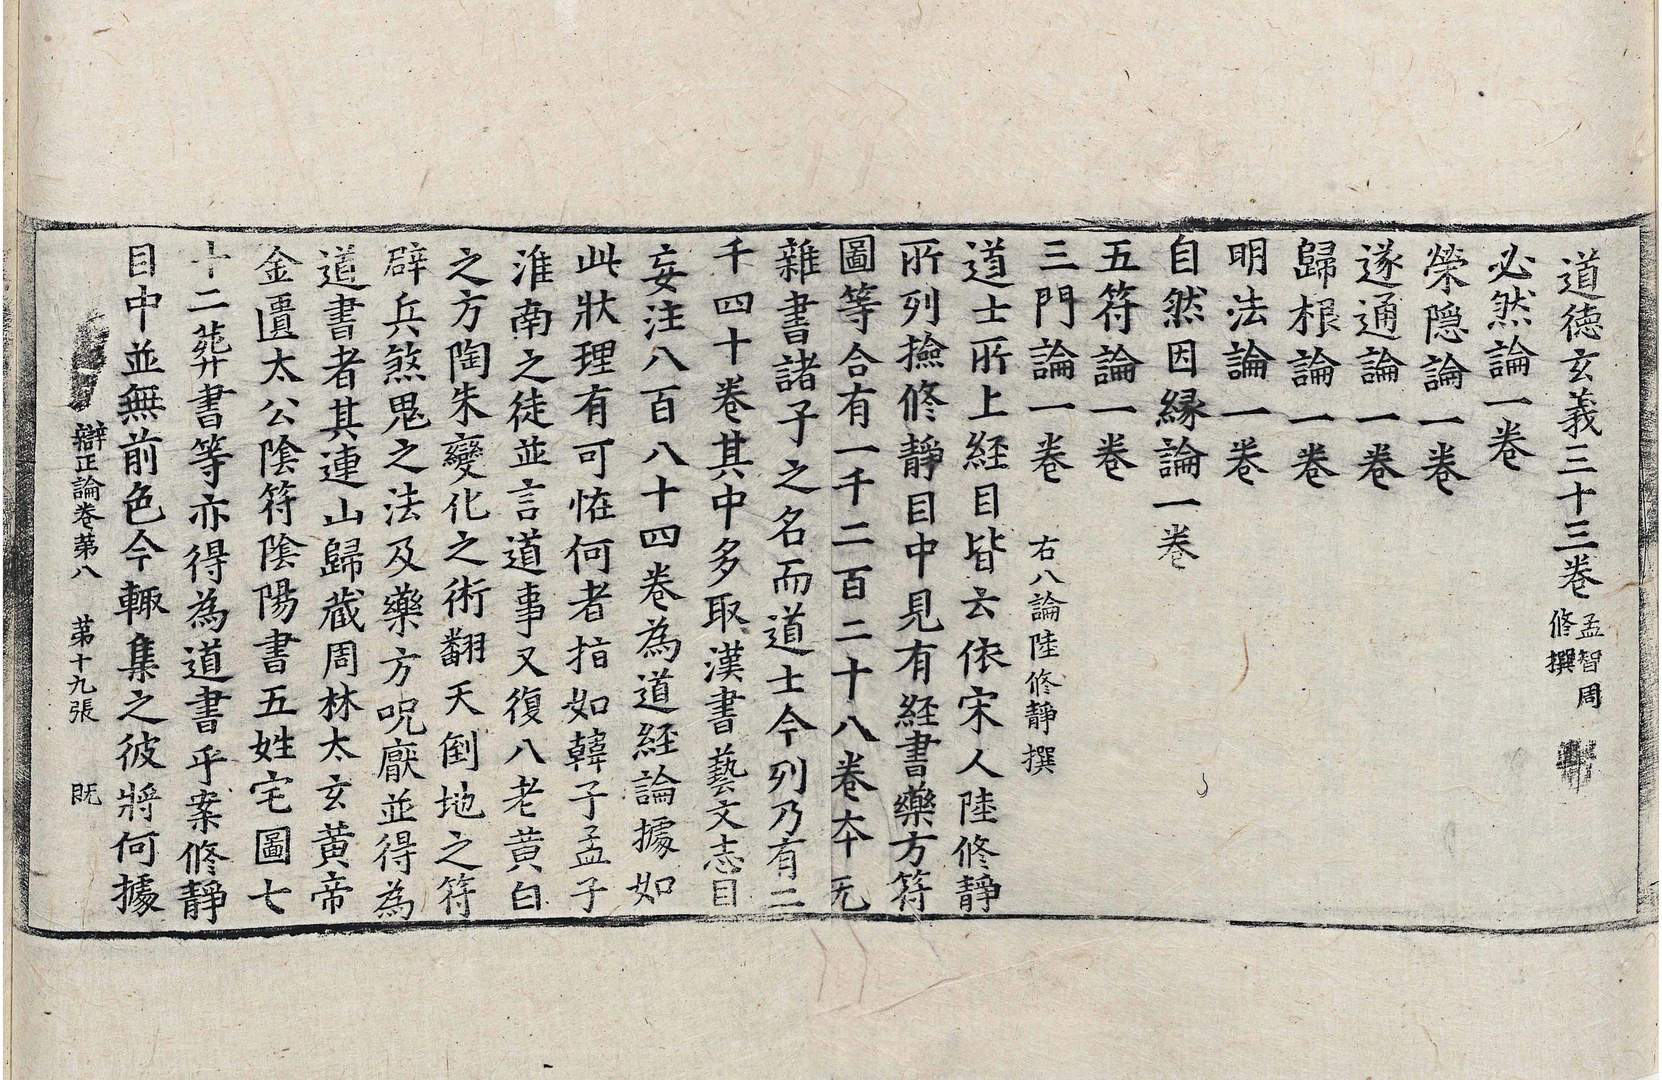 道徳玄義三十三卷 孟智周修撰
必然論一卷
榮隱論一卷
遂通論一卷
歸根論一卷
明法論一卷
自然因縁論一卷
五符論一卷
三門論一卷 右八論陸修靜撰
道士所上經目皆云依宋人陸修靜
所列撿修靜目中見有經書藥方符
圖等合有一千二百二十八卷夲无
雜書諸子之名而道士今列乃有二
千四十卷其中多取漢書藝文志目
妄注八百八十四卷為道經論據如
此狀理有可恠何者指如韓子孟子
淮南之徒並言道事又復八老黄白
之方陶朱變化之術翻天倒地之符
辟兵煞鬼之法及藥方呪厭並得為
道書者其連山歸藏周林太玄黄帝
金匱太公陰符陰陽書五姓宅圖七
十二葬書等亦得為道書乎案修靜
目中並無前色今輙集之彼將何據
辯正論卷第八 第十九張 既